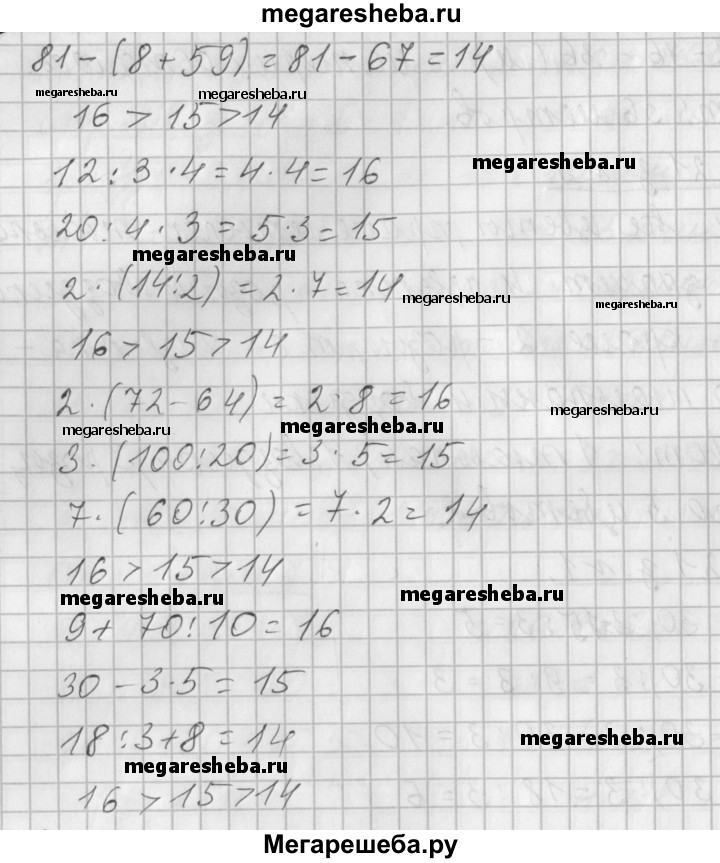 megaresheba.ru
81 - (8 + 59) = 81 - 67 = 14
megaresheba.ru megaresheba.ru
16 > 15 > 14
12 : 3 · 4 = 4 · 4 = 16 megaresheba.ru
20 : 4 · 3 = 5 · 3 = 15
megaresheba.ru
2 · (14 : 2) = 2 · 7 = 14 megaresheba.ru megaresheba.ru
16 > 15 > 14
2 · (72 - 64) = 2 · 8 = 16 megaresheba.ru
megaresheba.ru megaresheba.ru
3 · (100 : 20) = 3 · 5 = 15
7 · (60 : 30) = 7 · 2 = 14
16 > 15 > 14
megaresheba.ru megaresheba.ru
9 + 70 : 10 = 16
30 - 3 · 5 = 15
18 : 3 + 8 = 14 megaresheba.ru
megaresheba.ru
16 > 15 > 14
Мегарешеба.ру